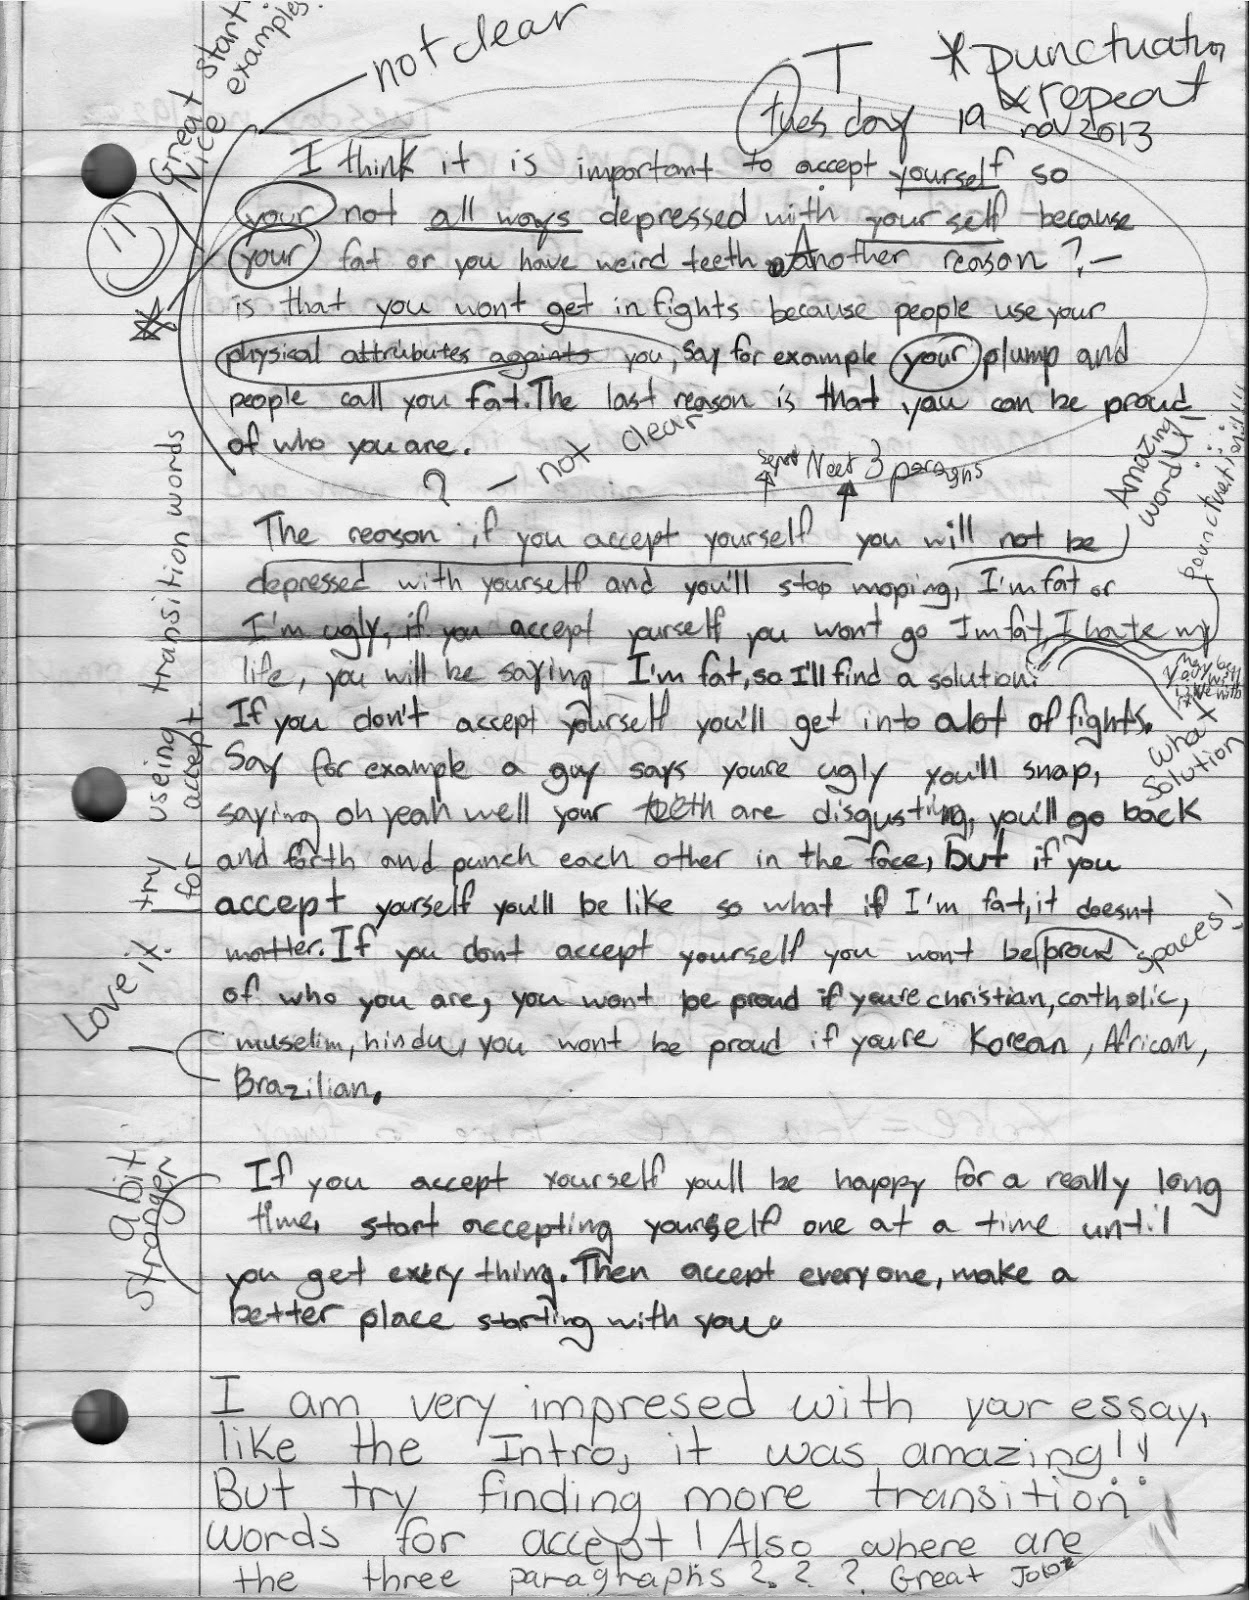 Great start
Nice examples!
not clear
T
*punctuation
repeat
tues day 19 nov 2013
I think it is important to accept yourself so
your not all ways depressed with your self because
your fat or you have weird teeth. Another reason ? —
is that you wont get in fights because people use your
physical attributes againts you, say for example your plump and
people call you fat. The last reason is that you can be proud
of who you are.
? — not clear
Neet 3 paragns
Amazing word U!!
punctuation!!!!
The reason if you accept yourself you will not be
depressed with yourself and you'll stop moping, I'm fat or
I'm ugly, if you accept yourself you wont go Im fat, I hate my
life, you will be saying I'm fat, so I'll find a solution.
If you don't accept yourself you'll get into alot of fights.
Say for example a guy says youre ugly you'll snap,
saying oh yeah well your teeth are disgusting, you'll go back
and forth and punch each other in the face, but if you
accept yourself you'll be like so what if I'm fat, it doesnt
matter. If you dont accept yourself you wont be proud
of who you are, you wont be proud if youre christian, catholic,
muselim, hindu, you wont be proud if youre Korean, African,
Brazilian.
try useing transition words
for accept
what
Solution
spaces!
Love it!
If you accept yourself youll be happy for a really long
time, start accepting yourself one at a time until
you get every thing. Then accept everyone, make a
better place starting with you.
a bit
Stronger
I am very impresed with your essay,
like the Intro, it was amazing!!
But try finding more transition
words for accept! Also where are
the three paragraphs ? ? ? Great Job